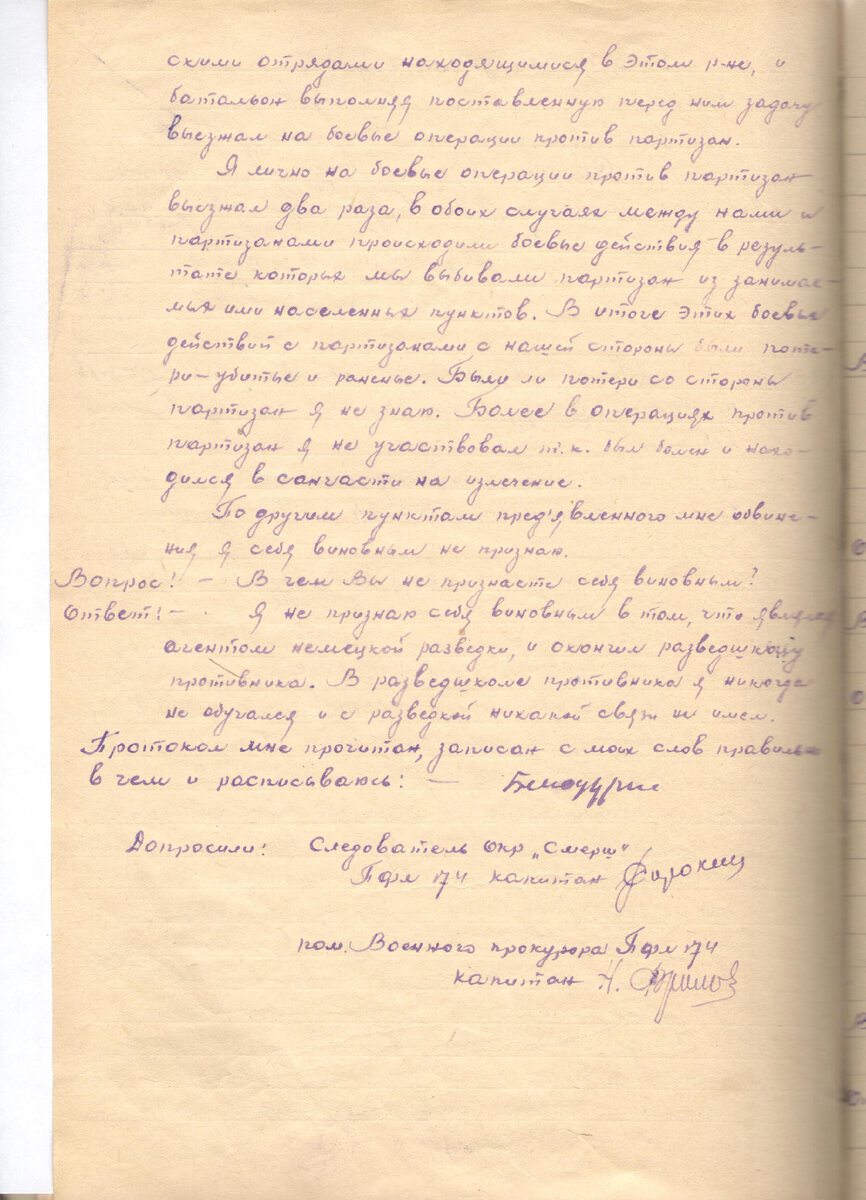 скими отрядами находящимися в этом р-не, и
батальон выполняя поставленную перед ним задачу
выезжал на боевые операции против партизан.
Я лично на боевые операции против партизан
выезжал два раза, в обоих случаях между нами и
партизанами происходили боевые действия в резуль-
тате которых мы выбивали партизан из занимае-
мых ими населенных пунктов. В итоге этих боевых
действий с партизанами с нашей стороны были поте-
ри - убитые и раненые. Были ли потери со стороны
партизан я не знаю. Более в операциях против
партизан я не участвовал т.к. был болен и нахо-
дился в санчасти на излечение.
По другим пунктам пред'явленного мне обвине-
ния я себя виновным не признаю.
Вопрос: - В чем Вы не признаете себя виновным?
Ответ: - Я не признаю себя виновным в том, что являлся
агентом немецкой разведки, и окончил разведшколу
противника. В разведшколе противника я никогда
не обучался и с разведкой никакой связи не имел.
Протокол мне прочитан, записан с моих слов правиль-
в чем и расписываюсь: -
Допросили: Следователь Окр „Смерш"
Пфл 174 капитан
пом. Военного прокурора Пфл 174
капитан Н.